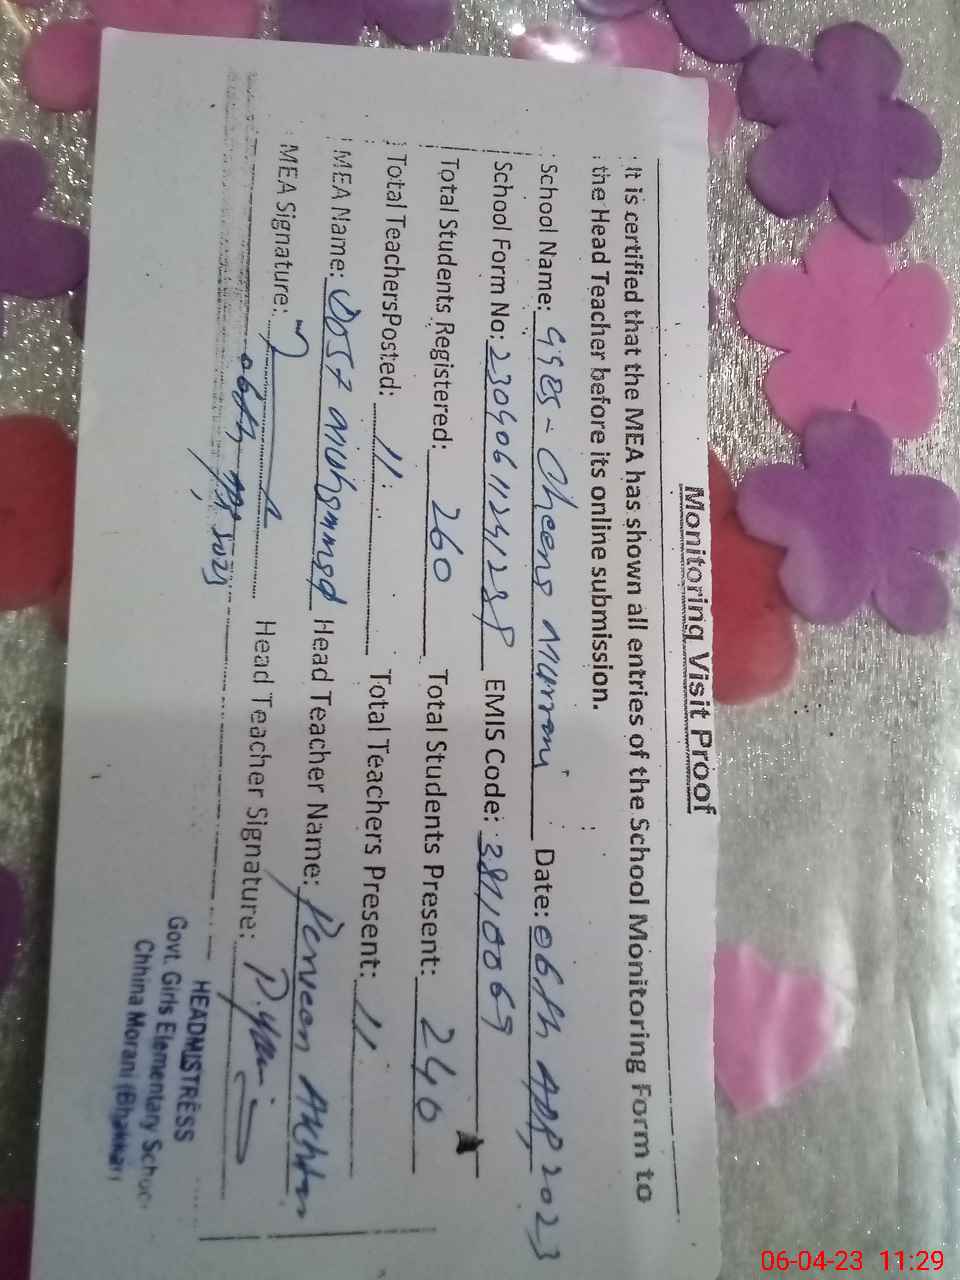 Monitoring Visit Proof
It is certified that the MEA has shown all entries of the School Monitoring Form to
the Head Teacher before its online submission.
School Name: GGES - Cheena Murrani Date: 06th APR, 2023
School Form No: EMIS Code: 38110069
Total Students Registered: 260 Total Students Present: 240
Total TeachersPosted: 11 Total Teachers Present: 11
MEA Name: Dost Muhammad Head Teacher Name: Perveen Akhtar
MEA Signature: Head Teacher Signature:
06th 2023
HEADMISTRESS
Govt. Girls Elementary School
Chhina Morani (Bhakkar)
06-04-23 11:29